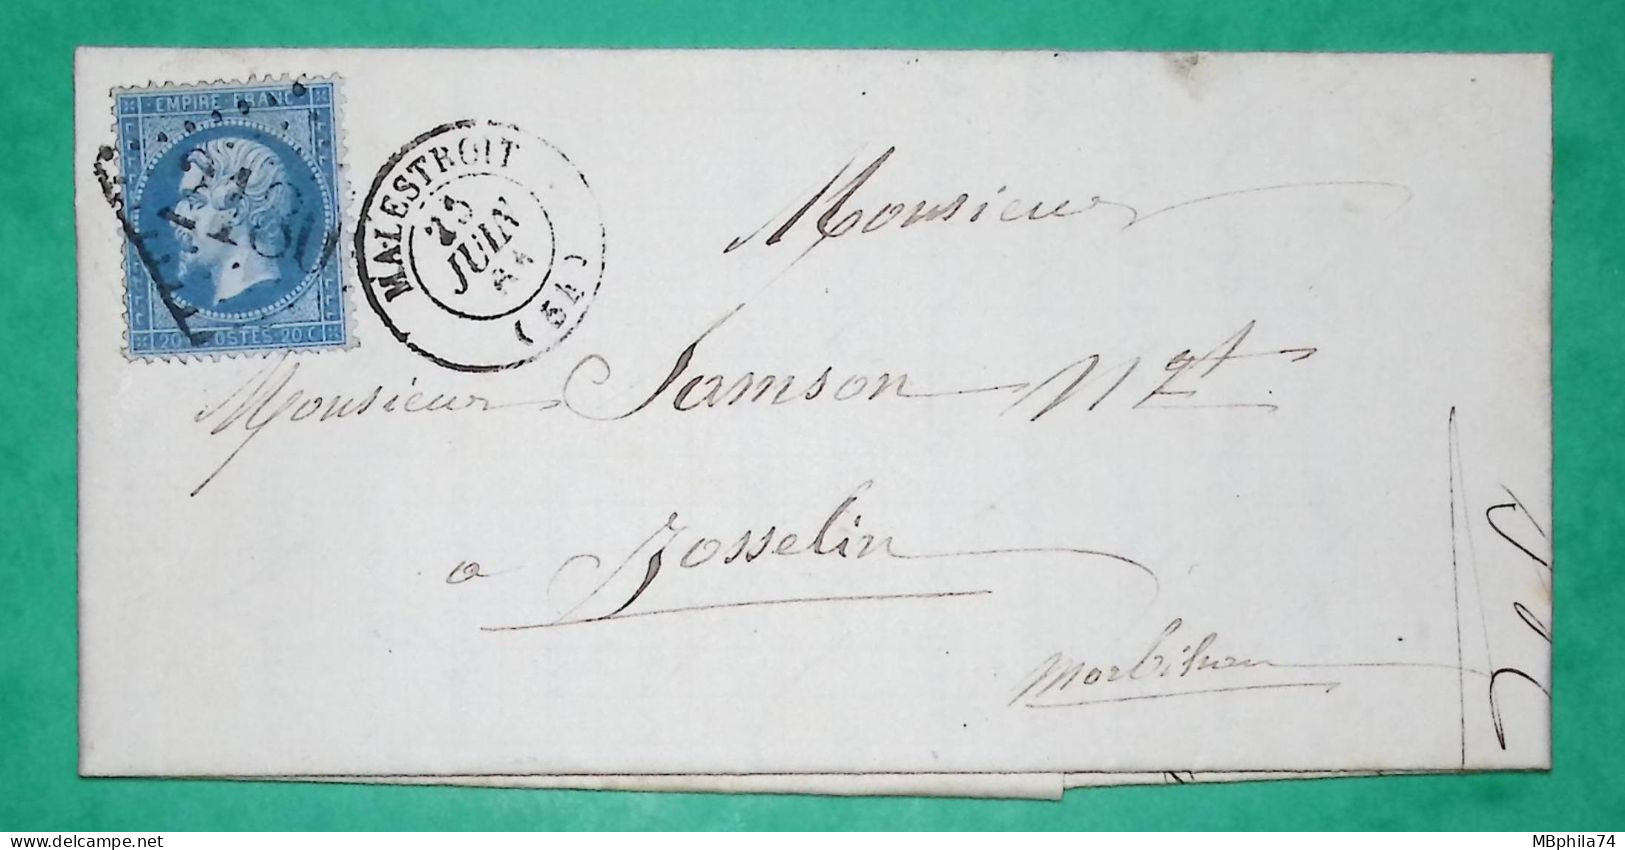 EMPIRE FRANC
20 C POSTES 20 C
MALESTROIT
JUIN
(54)
Monsieur
Monsieur Samson Ngt
a Josselin
Morbihan
MBphila74